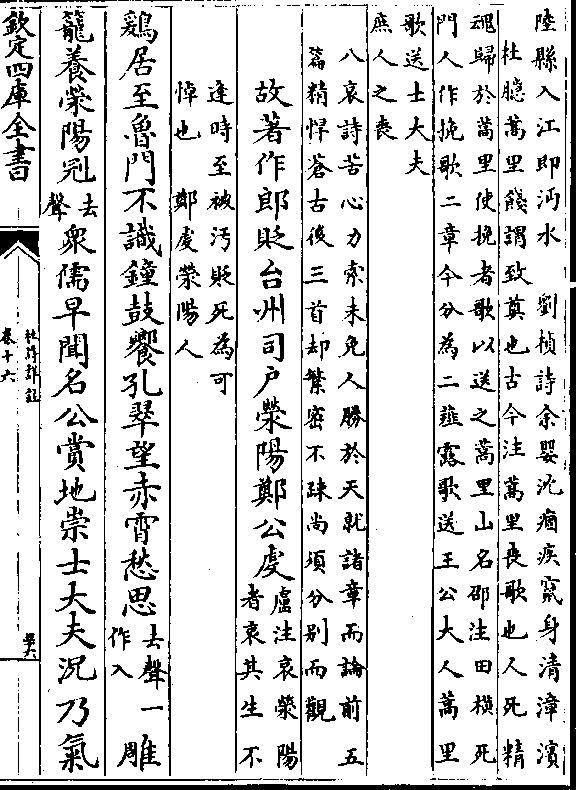 陸縣入江即沔水　劉楨詩余嬰沈痼疾竄身清漳濱
杜臆蒿里餞謂致奠也古今注蒿里喪歌也人死精
魂歸於蒿里使挽者歌以送之蒿里山名邵注田橫死
門人作挽歌二章今分為二薤露歌送王公大人蒿里
歌送士大夫
庶人之喪
八哀詩苦心力索未免人勝於天就諸章而論前五
篇精悍蒼古後三首却繁密不疎尚須分別而觀
故著作郎貶台州司户滎陽鄭公虔盧注哀滎陽者哀其生不
逢時至被汚貶死為可
悼也　鄭虔滎陽人
鷄居至魯門不識鐘鼓饗孔翠望赤霄愁思去聲一作入雕
籠養滎陽冠去聲衆儒早聞名公賞地崇士大夫況乃氣
欽定四庫全書
杜詩詳註
卷十六